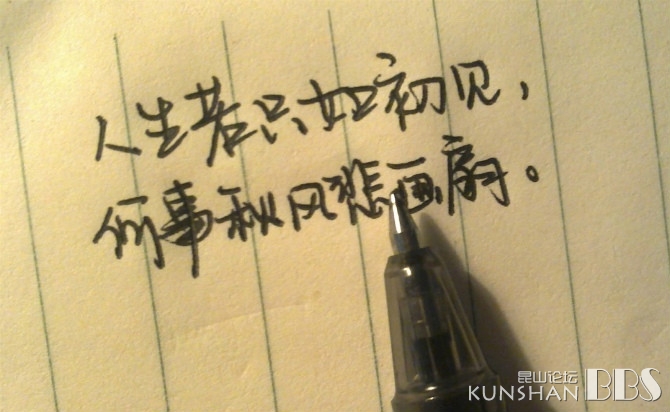 人生若只如初见，
何事秋风悲画扇。
昆山论坛
KUNSHAN BBS